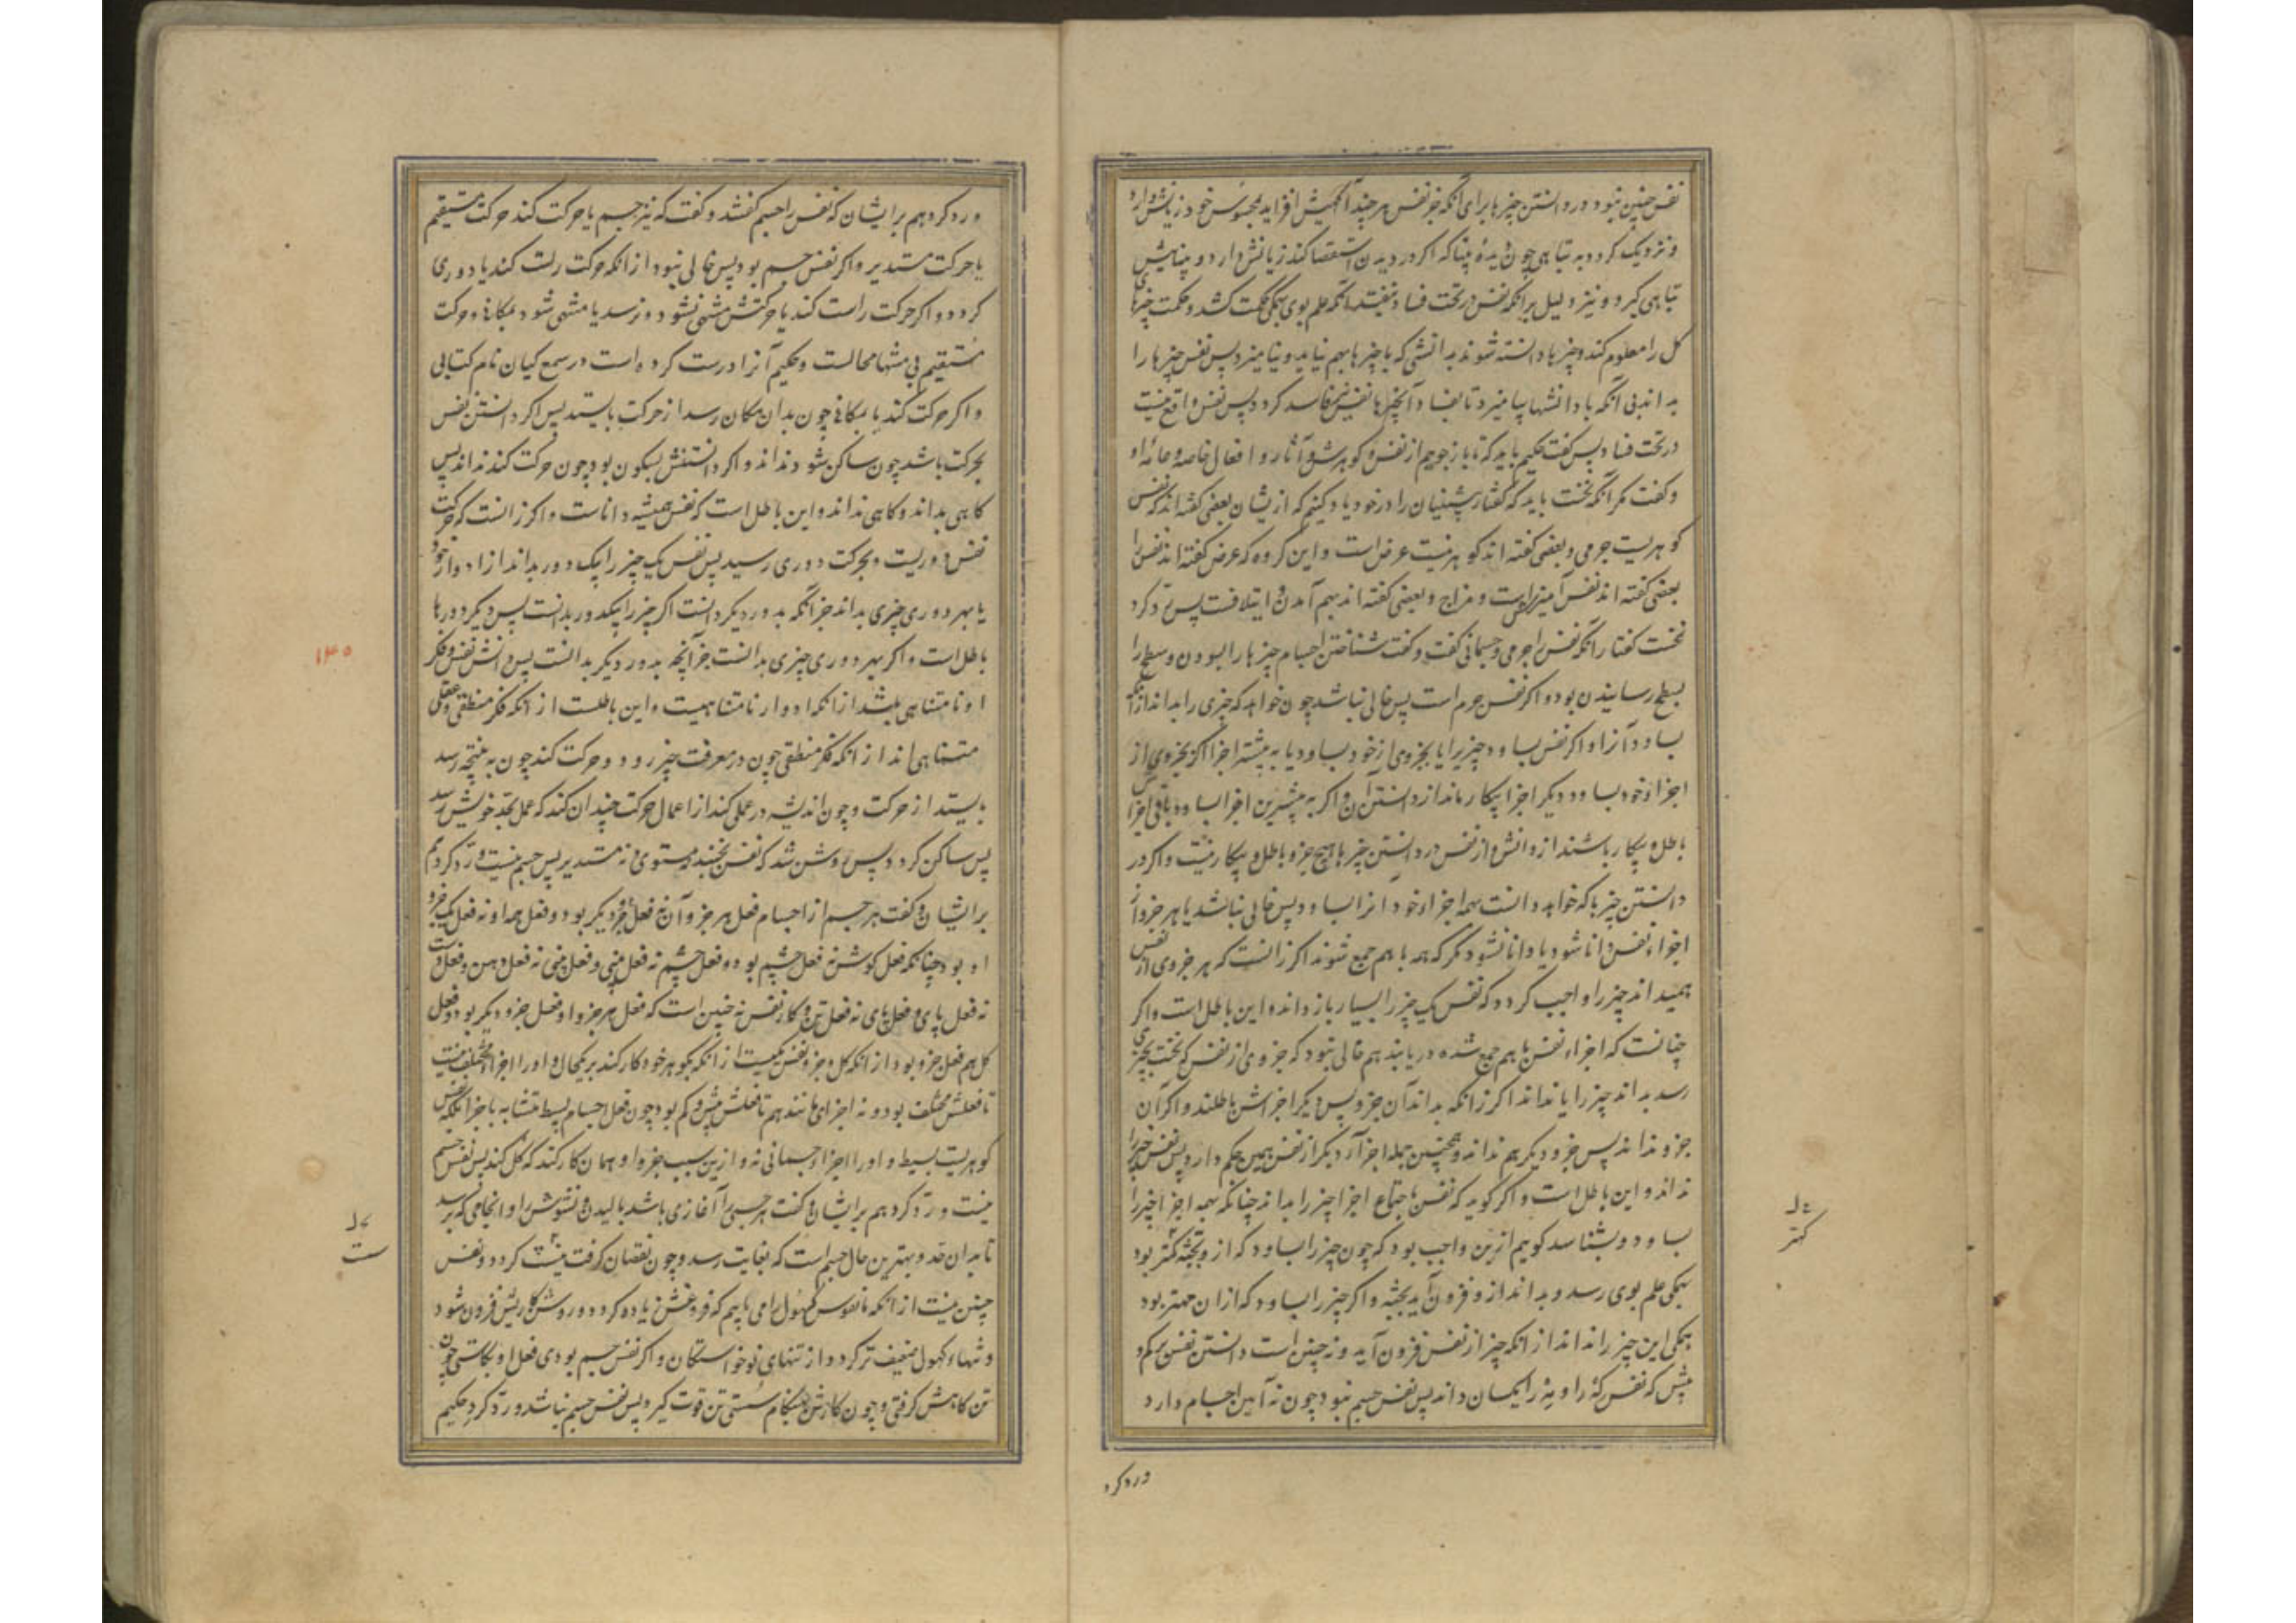 نفس چنین نبود در دانستن چیزها برای آنکه جز نفس هر چند آگهیش افزاید بمحسوس خود زیانش دارد
و نزدیک گردد به تباهی چون دیدهٔ بینا که اگر در دیدن استقصا کند زیانش دارد و بیناییش
تباهی گیرد و نیز دلیل برانکه نفس در تحت فساد نیفتد آنکه علم بوی همگی حکمت کشد و حکمت چیزهای
کل را معلوم کند و چیزها دانسته شوند بدانشی که با چیزها بهم نیاید و نیامیزد پس نفس چیزها را
بداند بی آنکه با دانشها بیامیزد تا بفساد آنچیزها نفس نیز فاسد گردد پس نفس واقع نیست
در تحت فساد پس گفت حکیم باید که تا بازجوییم از نفس و گوهرش و آثار و افعال خاصه و عامه او
و گفت مگر آنکه نخست باید که گفتار پیشینیان را در خود یاد کنیم که ازیشان بعضی گفته‌اند که نفس
گوهریست جرمی و بعضی گفته‌اند گوهر نیست عرض است و این گروه که عرض گفته‌اند نفس را
بعضی گفته‌اند نفس آمیزش است و مزاج و بعضی گفته‌اند بهم آمدن و ایتلافست پس رد کرد
نخست گفتار آنکه نفس را جرمی و جسمانی گفت و گفت شناختن اجسام چیزها را ببسودن و سطح را
بسطح رسانیدن بود و اگر نفس جرم است پس خالی نباشد چون خواهد که چیزی را بداند از آنکه
بساود آنرا و اگر نفس بساود چیزیرا یا بجزوی از خود بساود یا به بیشتر اجزا اگر بجزوی از
اجزاء خود بساود دیگر اجزا بیکار ماند از دانستن آن و اگر به بیشترین اجزا بساود باقی اجزا
باطل و بیکار باشند از دانش و از نفس در دانستن چیزها هیچ جزو باطل و بیکار نیست و اگر در
دانستن چیزها که خواهد دانست بهمه اجزاء خود آنرا بساود پس خالی نباشد یا هر جزو از
اجزاء نفس دانا شود یا دانا نشود مگر که همه با هم جمع شوند اگر زانست که هر جزوی از نفس
همیداند چیز را واجب گردد که نفس یک چیز را بسیار باز داند و این باطل است و اگر
چنانست که اجزاء نفس با هم جمع شده دریابند هم خالی نبود که جزوی از نفس که نخست بچیزی
رسد بداند چیز را یا نداند اگر زانکه بداند آن جزو پس دیگر اجزاش باطلند و اگر آن
جزو نداند پس جزو دیگر هم نداند و همچنین جمله اجزا آن دیگر از نفس همین حکم دارد پس نفس چیز را
نداند و این باطل است و اگر گوید که نفس باجتماع اجزا چیز را بداند چنانکه بهمه اجزا چیز را
بساود و بشناسد گوییم ازین واجب بود که چون چیز را بساود که از و بجثه کمتر بود
همگی علم بوی رسد و بداند از و فزون آید بجثه و اگر چیز را بساود که ازان مهتر بود
همگی این چیز را نداند از آنکه چیز از نفس فزون آید و نه چنین است دانستن نفس بکم و
بیش که نفس که را و مه را یکسان داند پس نفس جسم نبود چون نه آیین اجسام دارد
ورد کرد
ورد کرد هم بر ایشان که نفس را جسم گفتند و گفت که نیز جسم یا حرکت کند حرکت مستقیم
یا حرکت مستدیر و اگر نفس جسم بود پس خالی نبود از آنکه حرکت راست کند یا دوری
گردد و اگر حرکت راست کند یا حرکتش منتهی نشود و نرسد یا منتهی شود بمکانی و حرکت
مستقیم بی منتها محالست و حکیم آنرا درست کرده است در سمع کیان نام کتابی
و اگر حرکت کند یا بمکانی چون بدان مکان رسد از حرکت بایستد پس اگر دانستن نفس
بحرکت باشد چون ساکن شود نداند و اگر دانستنش بسکون بود چون حرکت کند نداند پس
گاهی بداند و گاهی نداند و این باطل است که نفس همیشه داناست و اگر زانست که حرکت
نفس دوریست و بحرکت دوری رسید پس نفس یک چیز را بیک دور بداند از ادوار خود
یا بهر دوری چیزی بداند جز آنکه بدور دیگر دانست اگر چیز را بیکدور بدانست پس دیگر دورها
باطل است و اگر بهر دوری چیزی بدانست جز آنچه بدور دیگر بدانست پس دانش نفس و فکر
او نامتناهی باشد از آنکه ادوار نامتناهیست و این باطلست از آنکه فکر منطقی و عقلی
متناهی‌اند از آنکه فکر منطقی چون در معرفت چیز رود و حرکت کند چون به نتیجه رسد
بایستد از حرکت و چون اندیشه در عملی کند از اعمال حرکت چندان کند که عمل بحد خویش رسد
پس ساکن گردد پس روشن شد که نفس نجنبد نه مستوی و نه مستدیر پس جسم نیست ورد کرد هم
بر ایشان و گفت هر جسم از اجسام فعل هر جزو آن نه فعل جزو دیگر بود و فعل همه او نه فعل یک جزو
او بود چنانکه فعل گوش نه فعل چشم بود و فعل چشم نه فعل بینی و فعل بینی نه فعل دهن و فعل دست
نه فعل پای و فعل پای نه فعل تن و کار نفس نه چنین است که فعل هر جزو او فعل جزو دیگر بود و فعل
کل هم فعل جزو بود از آنکه کل و جزو نفس یکیست از آنکه بگوهر خود کار کند بر یکحال و او را اجزاء مختلف نیست
تا فعلش مختلف بود و نه اجزای مانند هم تا فعلش بیش و کم بود چون فعل اجسام بسیط متشابه با جزا بلکه نفس
گوهریست بسیط و او را اجزاء جسمانی نه و ازین سبب جزو او همان کار کند که کل کند پس نفس جسم
نیست ورد کرد هم بر ایشان و گفت هر جسمی را آغازی باشد بالیدن و نشوش را و انجامی که برسد
تا بدان حد و بهترین حال جسم است که بغایت رسد و چون نقصان گرفت نیست گردد و نفس
چنین نیست از آنکه ما نفوس کهول را می یابیم که فروغش زیاده گردد و روشن کاریش فزون شود
و تنهاء کهول ضعیف‌تر گردد از تنهای نوخواستگان و اگر نفس جسم بودی فعل او بکاستی چون
تن کاهش گرفتی و چون کارش بهنگام سستی تن قوت گیرد پس نفس جسم نباشد ورد کرد حکیم
۱۴۵